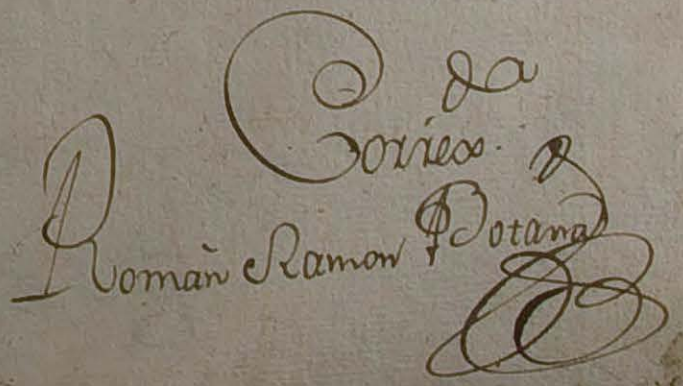 Correx.da
Román Ramon Botana